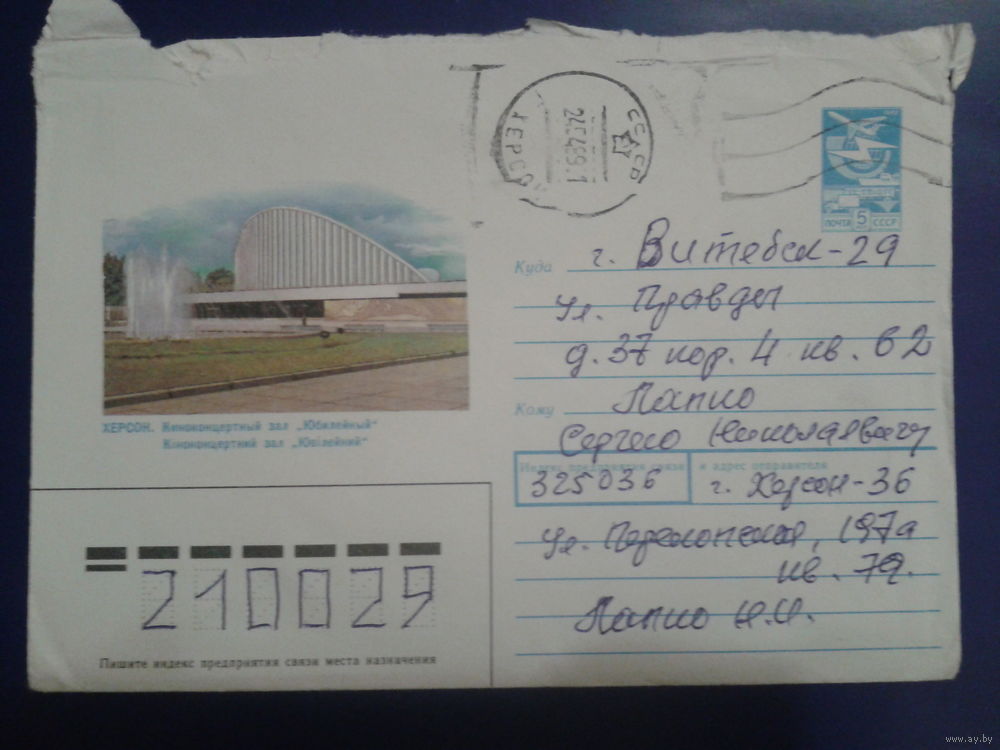 СССР
ХЕРСОН
24.04.89.1
ПОЧТА 5 СССР
Куда г. Витебск-29
ул. Правды
д. 37 кор. 4 кв. 62
Кому Лапко
Сергею Николаевичу
Индекс предприятия связи и адрес отправителя
325036 г. Херсон-36
ул. Перекопская, 197а
кв. 79.
Лапко Н.И.
ХЕРСОН. Киноконцертный зал „Юбилейный"
Кіноконцертний зал „Ювілейний"
210029
Пишите индекс предприятия связи места назначения
www.ay.by